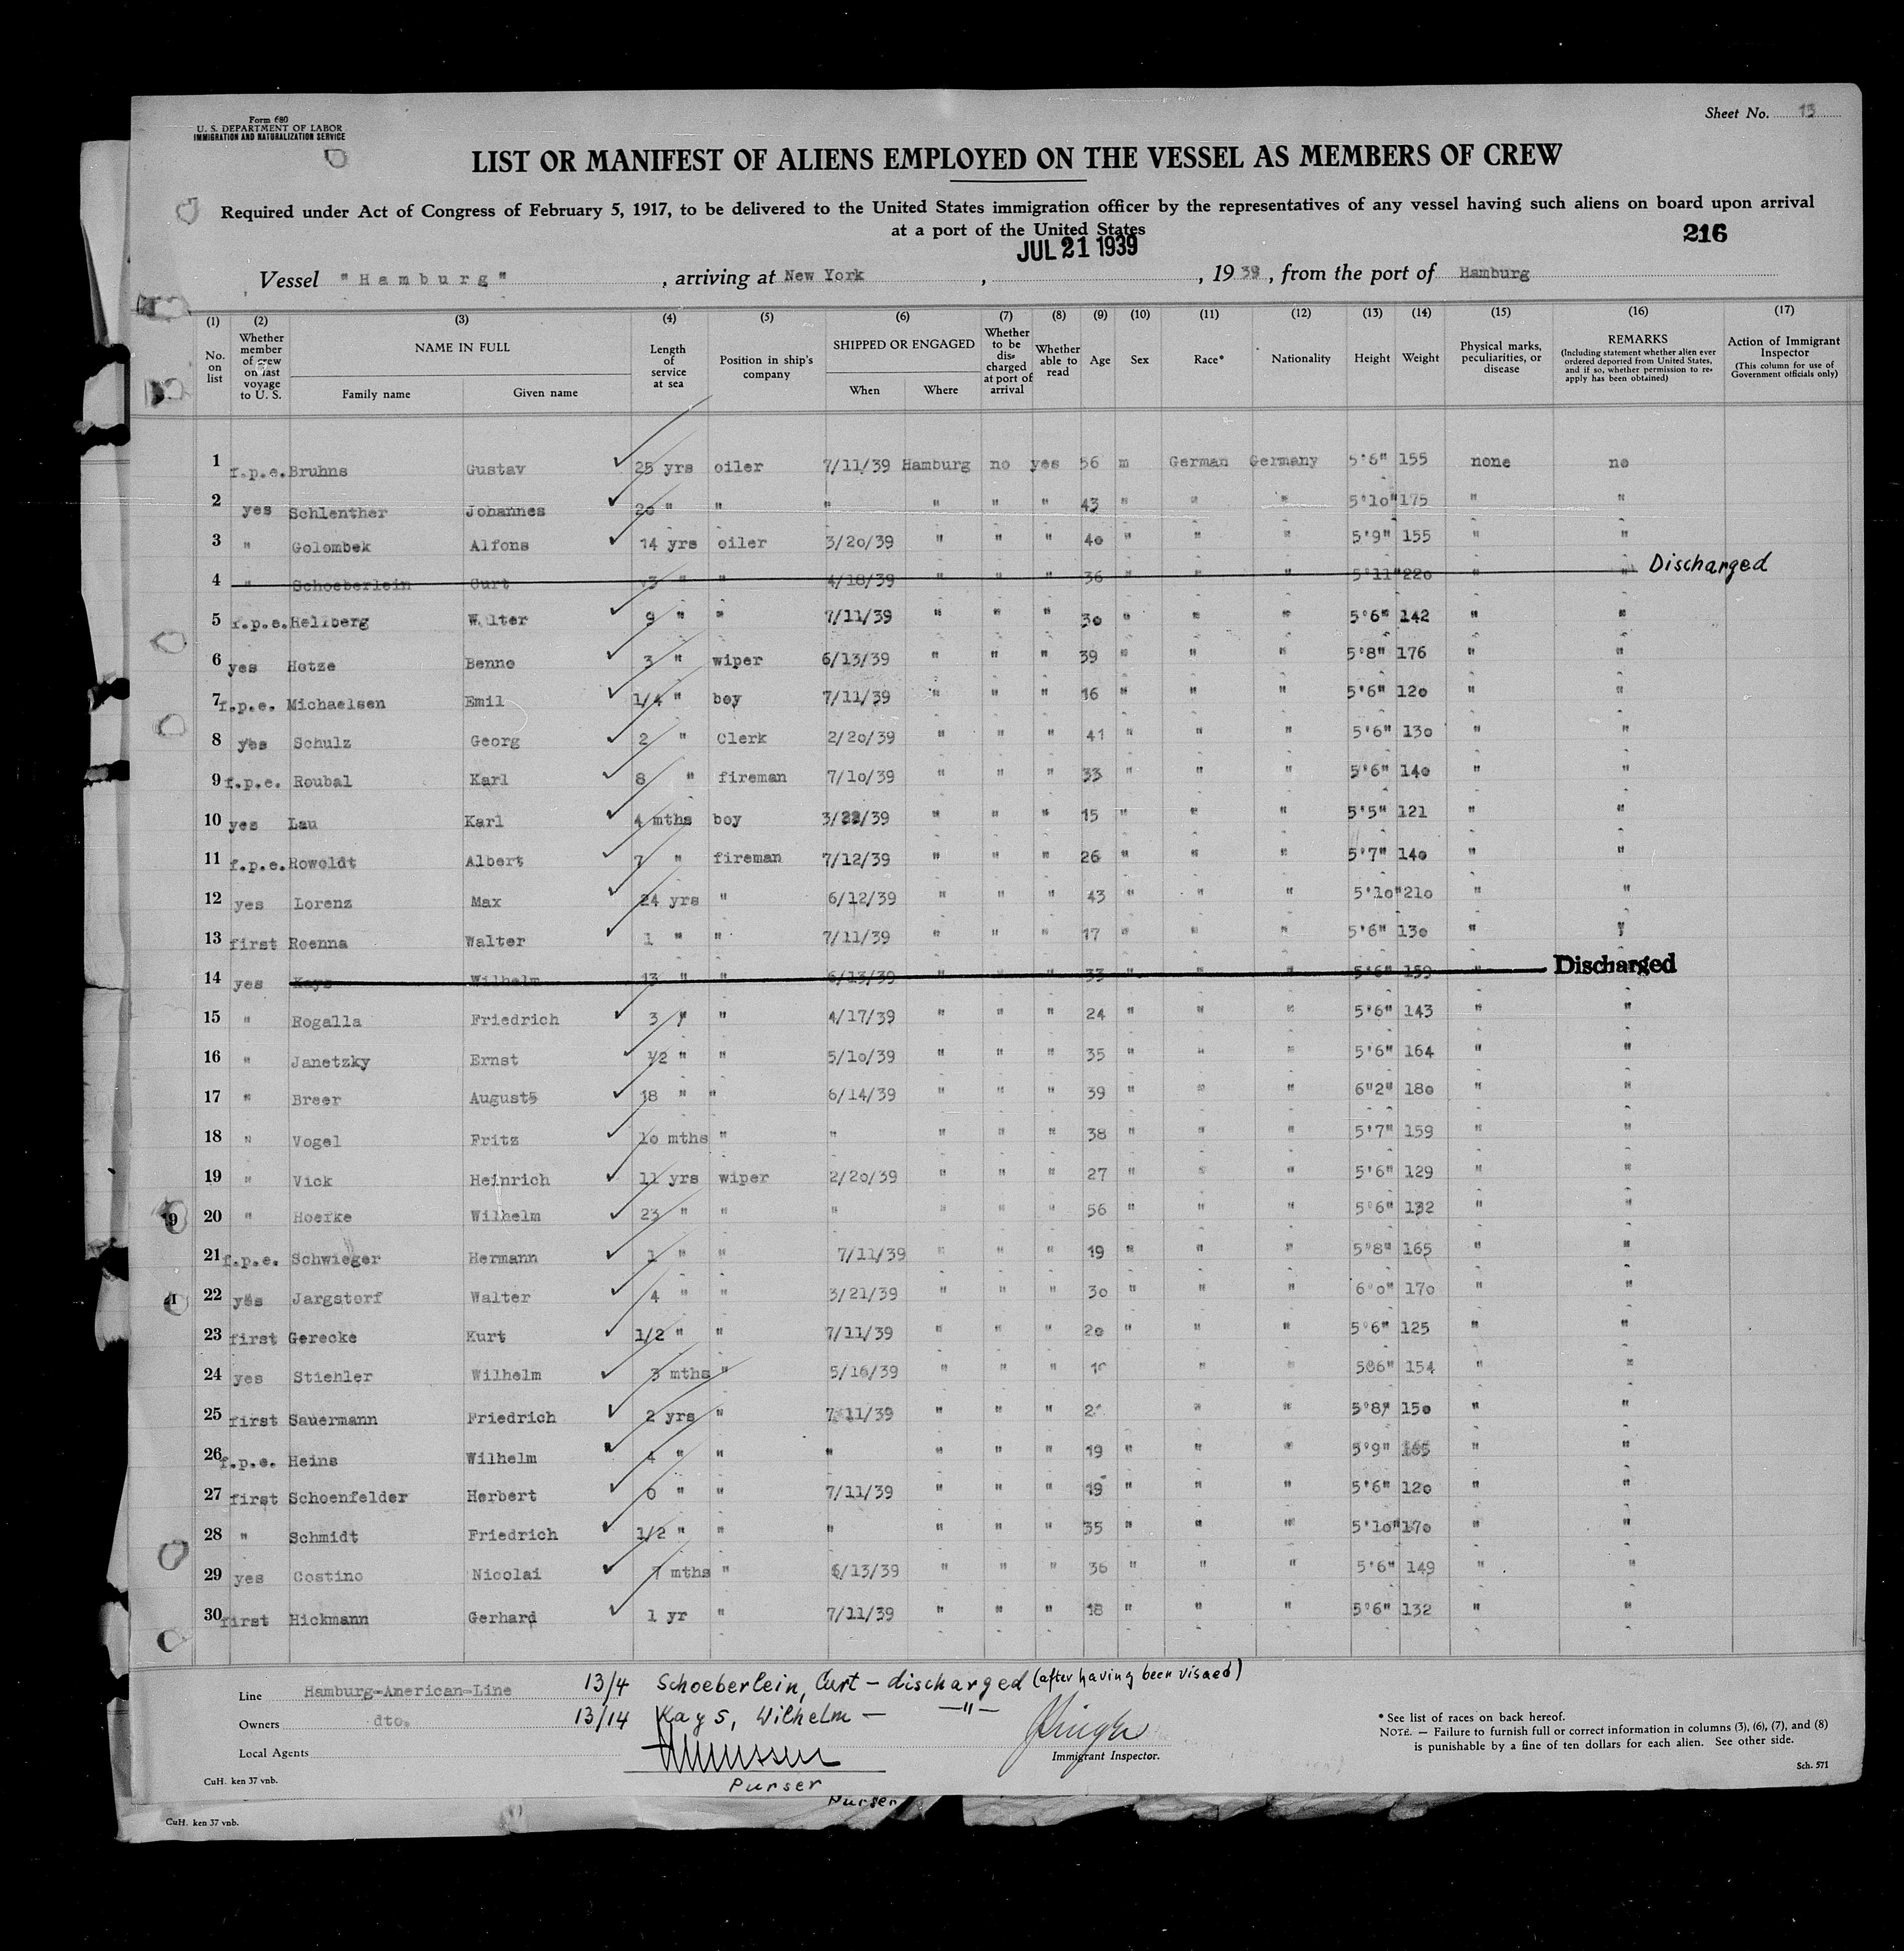 Form 680
U. S. DEPARTMENT OF LABOR
IMMIGRATION AND NATURALIZATION SERVICE
Sheet No. 13
LIST OR MANIFEST OF ALIENS EMPLOYED ON THE VESSEL AS MEMBERS OF CREW
Required under Act of Congress of February 5, 1917, to be delivered to the United States immigration officer by the representatives of any vessel having such aliens on board upon arrival
at a port of the United States
216
JUL 21 1939
Vessel "Hamburg", arriving at New York, , 1939, from the port of Hamburg
(1) (2) (3) (4) (5) (6) (7) (8) (9) (10) (11) (12) (13) (14) (15) (16) (17)
No. on list Whether member of crew on last voyage to U. S. NAME IN FULL Family name Given name Length of service at sea Position in ship's company SHIPPED OR ENGAGED When Where Whether to be discharged at port of arrival Whether able to read Age Sex Race* Nationality Height Weight Physical marks, peculiarities, or disease REMARKS (Including statement whether alien ever ordered deported from United States, and if so, whether permission to re-apply has been obtained) Action of Immigrant Inspector (This column for use of Government officials only)
1 f.p.e. Bruhns Gustav 25 yrs oiler 7/11/39 Hamburg no yes 56 m German Germany 5'6" 155 none no
2 yes Schlenther Johannes 20 " " " " " " 43 " " " 5'10" 175 " "
3 " Golombek Alfons 14 yrs oiler 3/20/39 " " " 40 " " " 5'9" 155 " "
4 " Schoeberlein Curt 13 " " 4/18/39 " " " 36 " " " 5'11" 220 " " Discharged
5 f.p.e. Hellberg Walter 9 " " 7/11/39 " " " 30 " " " 5'6" 142 " "
6 yes Hotze Benno 3 " wiper 6/13/39 " " " 39 " " " 5'8" 176 " "
7 f.p.e. Michaelsen Emil 1/4 " boy 7/11/39 " " " 16 " " " 5'6" 120 " "
8 yes Schulz Georg 2 " Clerk 2/20/39 " " " 41 " " " 5'6" 130 " "
9 f.p.e. Roubal Karl 8 " fireman 7/10/39 " " " 33 " " " 5'6" 140 " "
10 yes Lau Karl 4 mths boy 3/22/39 " " " 15 " " " 5'5" 121 " "
11 f.p.e. Rowoldt Albert 7 " fireman 7/12/39 " " " 26 " " " 5'7" 140 " "
12 yes Lorenz Max 24 yrs " 6/12/39 " " " 43 " " " 5'10" 210 " "
13 first Roenna Walter 1 " " 7/11/39 " " " 17 " " " 5'6" 130 " "
14 yes Kays Wilhelm 13 " " 6/13/39 " " " 33 " " " 5'6" 159 " Discharged
15 " Rogalla Friedrich 3 " " 4/17/39 " " " 24 " " " 5'6" 143 " "
16 " Janetzky Ernst 1/2 " " 5/10/39 " " " 35 " " " 5'6" 164 " "
17 " Breer August 18 " " 6/14/39 " " " 39 " " " 6"2" 180 " "
18 " Vogel Fritz 10 mths " " " " " 38 " " " 5'7" 159 " "
19 " Vick Heinrich 11 yrs wiper 2/20/39 " " " 27 " " " 5'6" 129 " "
20 " Hoefke Wilhelm 23 " " " " " " 56 " " " 5'6" 132 " "
21 f.p.e. Schwieger Hermann 1 " " 7/11/39 " " " 19 " " " 5'8" 165 " "
22 yes Jargstorf Walter 4 " " 3/21/39 " " " 30 " " " 6'0" 170 " "
23 first Gerecke Kurt 1/2 " " 7/11/39 " " " 20 " " " 5'6" 125 " "
24 yes Stiehler Wilhelm 3 mths " 5/16/39 " " " " " 586" 154 " "
25 first Sauermann Friedrich 2 yrs " 7/11/39 " " " " " 5'8" 150 " "
26 f.p.e. Heins Wilhelm 4 " " " " " " 19 " " " 5'9" 165 " "
27 first Schoenfelder Herbert 0 " " 7/11/39 " " " 19 " " " 5'6" 120 " "
28 " Schmidt Friedrich 1/2 " " " " " " 35 " " " 5'10" 170 " "
29 yes Costino Nicolai 7 mths " 6/13/39 " " " 36 " " " 5'6" 149 " "
30 first Hickmann Gerhard 1 yr " 7/11/39 " " " 18 " " " 5'6" 132 " "
Line Hamburg-American-Line
Owners dto.
Local Agents
13/4 Schoeberlein, Curt – discharged (after having been visaed)
13/14 Kays, Wilhelm – –"–
Purser
Immigrant Inspector.
* See list of races on back hereof.
NOTE. — Failure to furnish full or correct information in columns (3), (6), (7), and (8)
is punishable by a fine of ten dollars for each alien. See other side.
CuH. ken 37 vnb.
Sch. 571
Purser
CuH. ken 37 vnb.